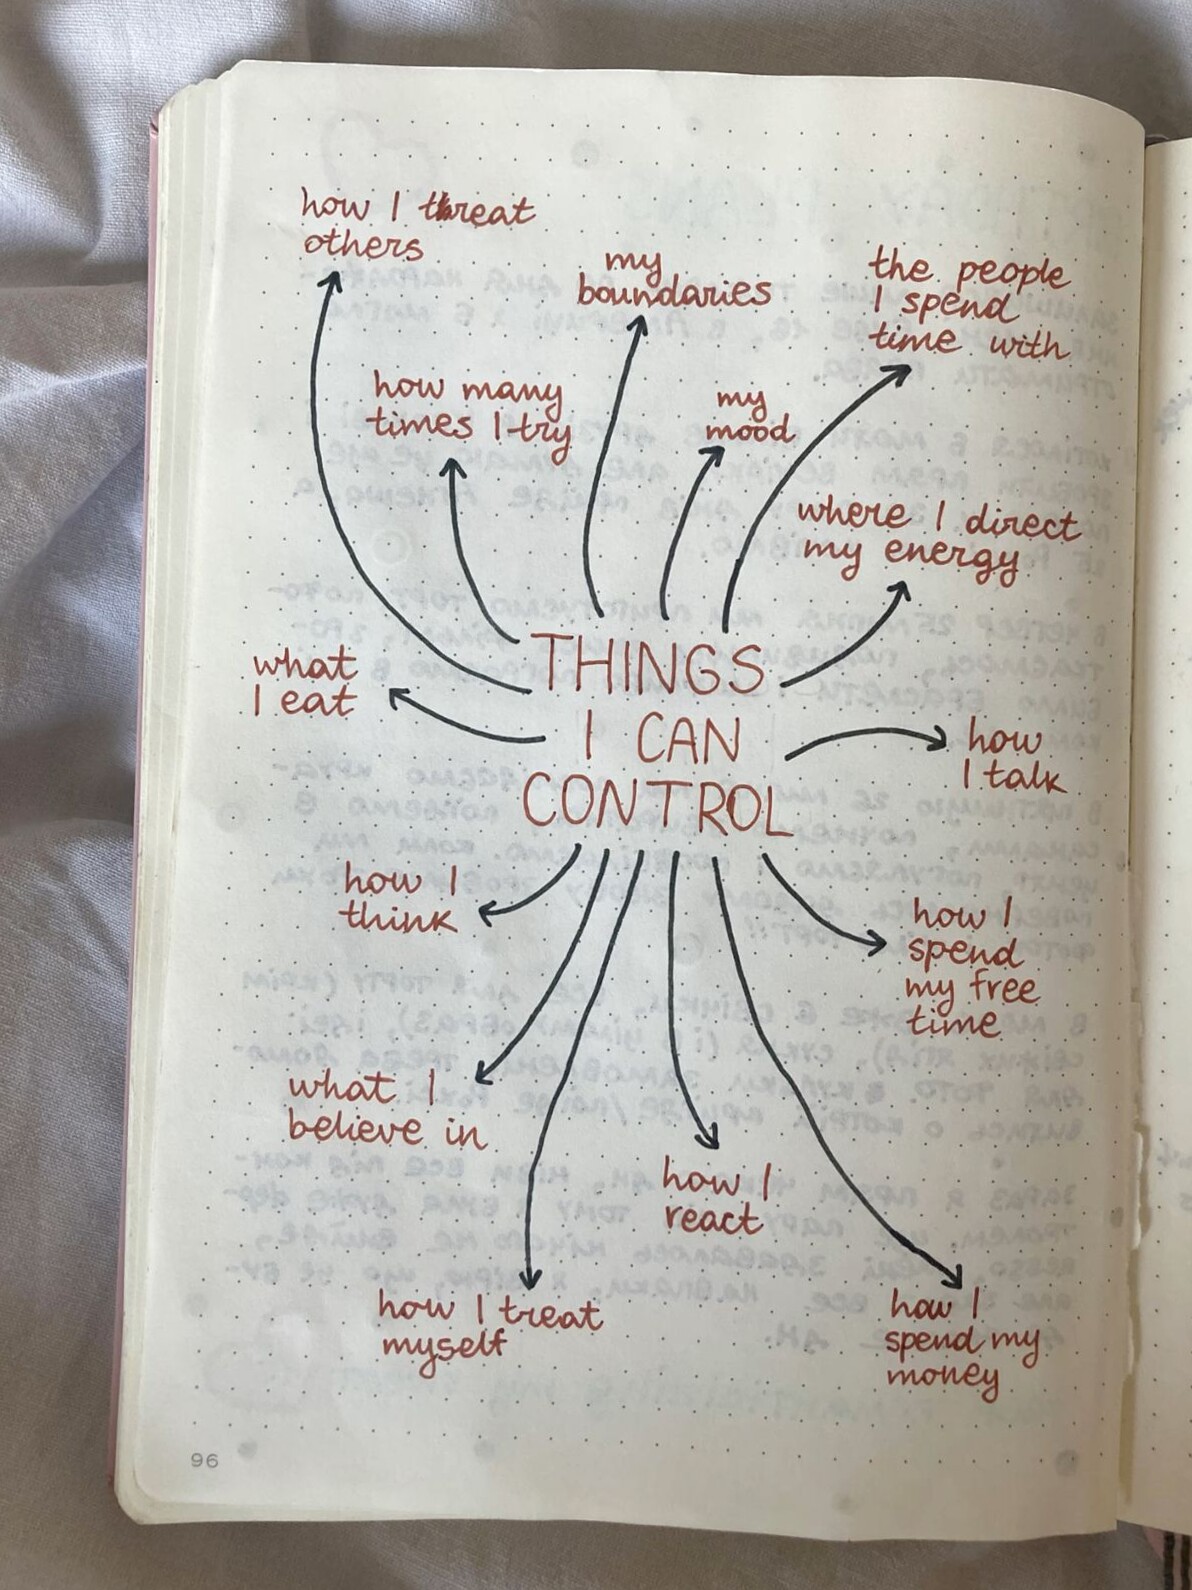 how I threat
others
my
boundaries
the people
I spend
time with
how many
times I try
my
mood
where I direct
my energy
THINGS
I CAN
CONTROL
what
I eat
how
I talk
how I
think
how I
spend
my free
time
what I
believe in
how I
react
how I treat
myself
how I
spend my
money
96